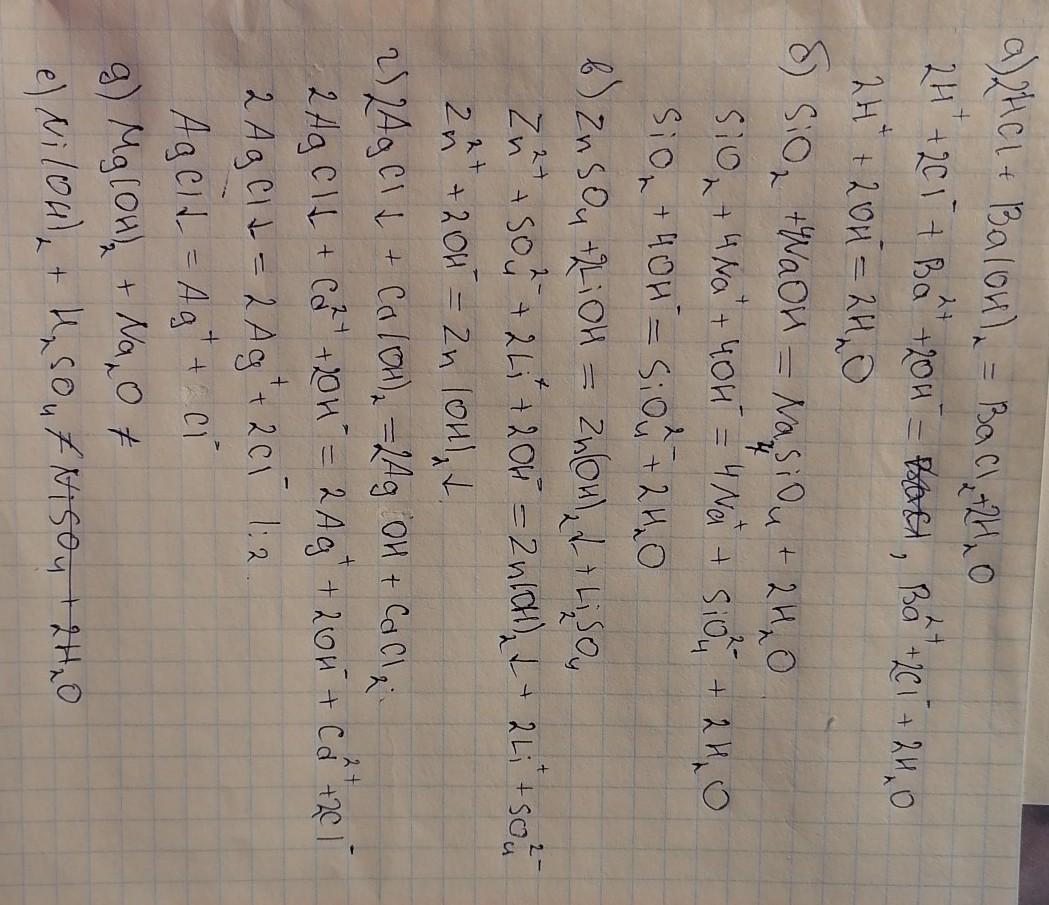 а) 2HCl + Ba(OH)₂ = BaCl₂ + 2H₂O
2H⁺ + 2Cl⁻ + Ba²⁺ + 2OH⁻ = Ba²⁺ + 2Cl⁻ + 2H₂O
2H⁺ + 2OH⁻ = 2H₂O
б) SiO₂ + 4NaOH = Na₄SiO₄ + 2H₂O
SiO₂ + 4Na⁺ + 4OH⁻ = 4Na⁺ + SiO₄²⁻ + 2H₂O
SiO₂ + 4OH⁻ = SiO₄²⁻ + 2H₂O
в) ZnSO₄ + 2LiOH = Zn(OH)₂↓ + Li₂SO₄
Zn²⁺ + SO₄²⁻ + 2Li⁺ + 2OH⁻ = Zn(OH)₂↓ + 2Li⁺ + SO₄²⁻
Zn²⁺ + 2OH⁻ = Zn(OH)₂↓
г) 2AgCl↓ + Cd(OH)₂ = 2AgOH + CdCl₂
2AgCl↓ + Cd²⁺ + 2OH⁻ = 2Ag⁺ + 2OH⁻ + Cd²⁺ + 2Cl⁻
2AgCl↓ = 2Ag⁺ + 2Cl⁻ |:2
AgCl↓ = Ag⁺ + Cl⁻
д) Mg(OH)₂ + Na₂O ≠
е) Ni(OH)₂ + H₂SO₄ ≠ NiSO₄ + 2H₂O